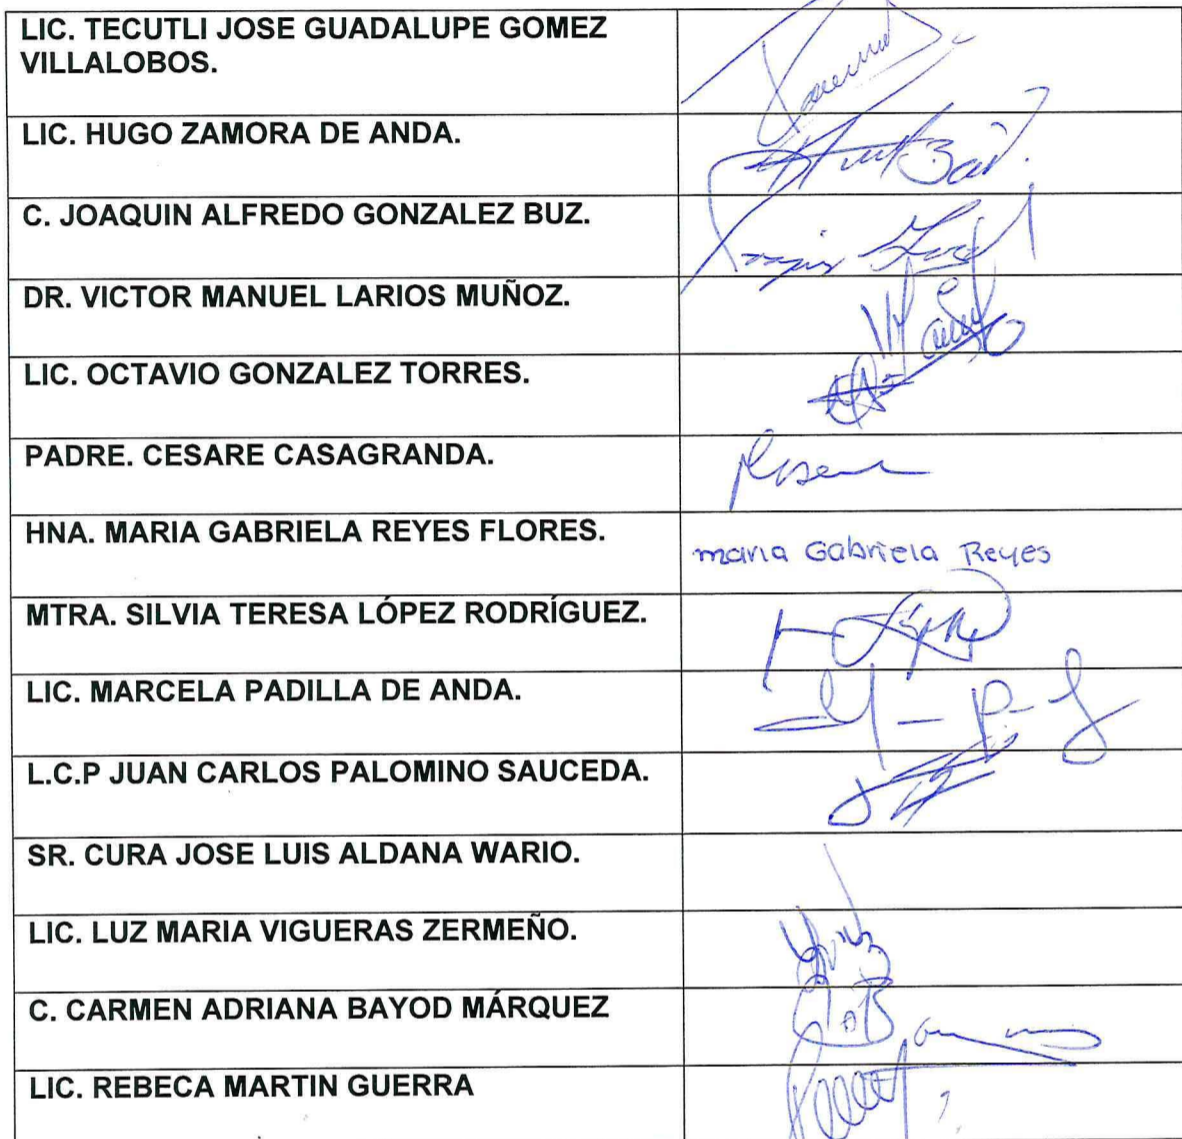 LIC. TECUTLI JOSE GUADALUPE GOMEZ
VILLALOBOS.
LIC. HUGO ZAMORA DE ANDA.
C. JOAQUIN ALFREDO GONZALEZ BUZ.
DR. VICTOR MANUEL LARIOS MUÑOZ.
LIC. OCTAVIO GONZALEZ TORRES.
PADRE. CESARE CASAGRANDA.
HNA. MARIA GABRIELA REYES FLORES.
maria Gabriela Reyes
MTRA. SILVIA TERESA LÓPEZ RODRÍGUEZ.
LIC. MARCELA PADILLA DE ANDA.
L.C.P JUAN CARLOS PALOMINO SAUCEDA.
SR. CURA JOSE LUIS ALDANA WARIO.
LIC. LUZ MARIA VIGUERAS ZERMEÑO.
C. CARMEN ADRIANA BAYOD MÁRQUEZ
LIC. REBECA MARTIN GUERRA